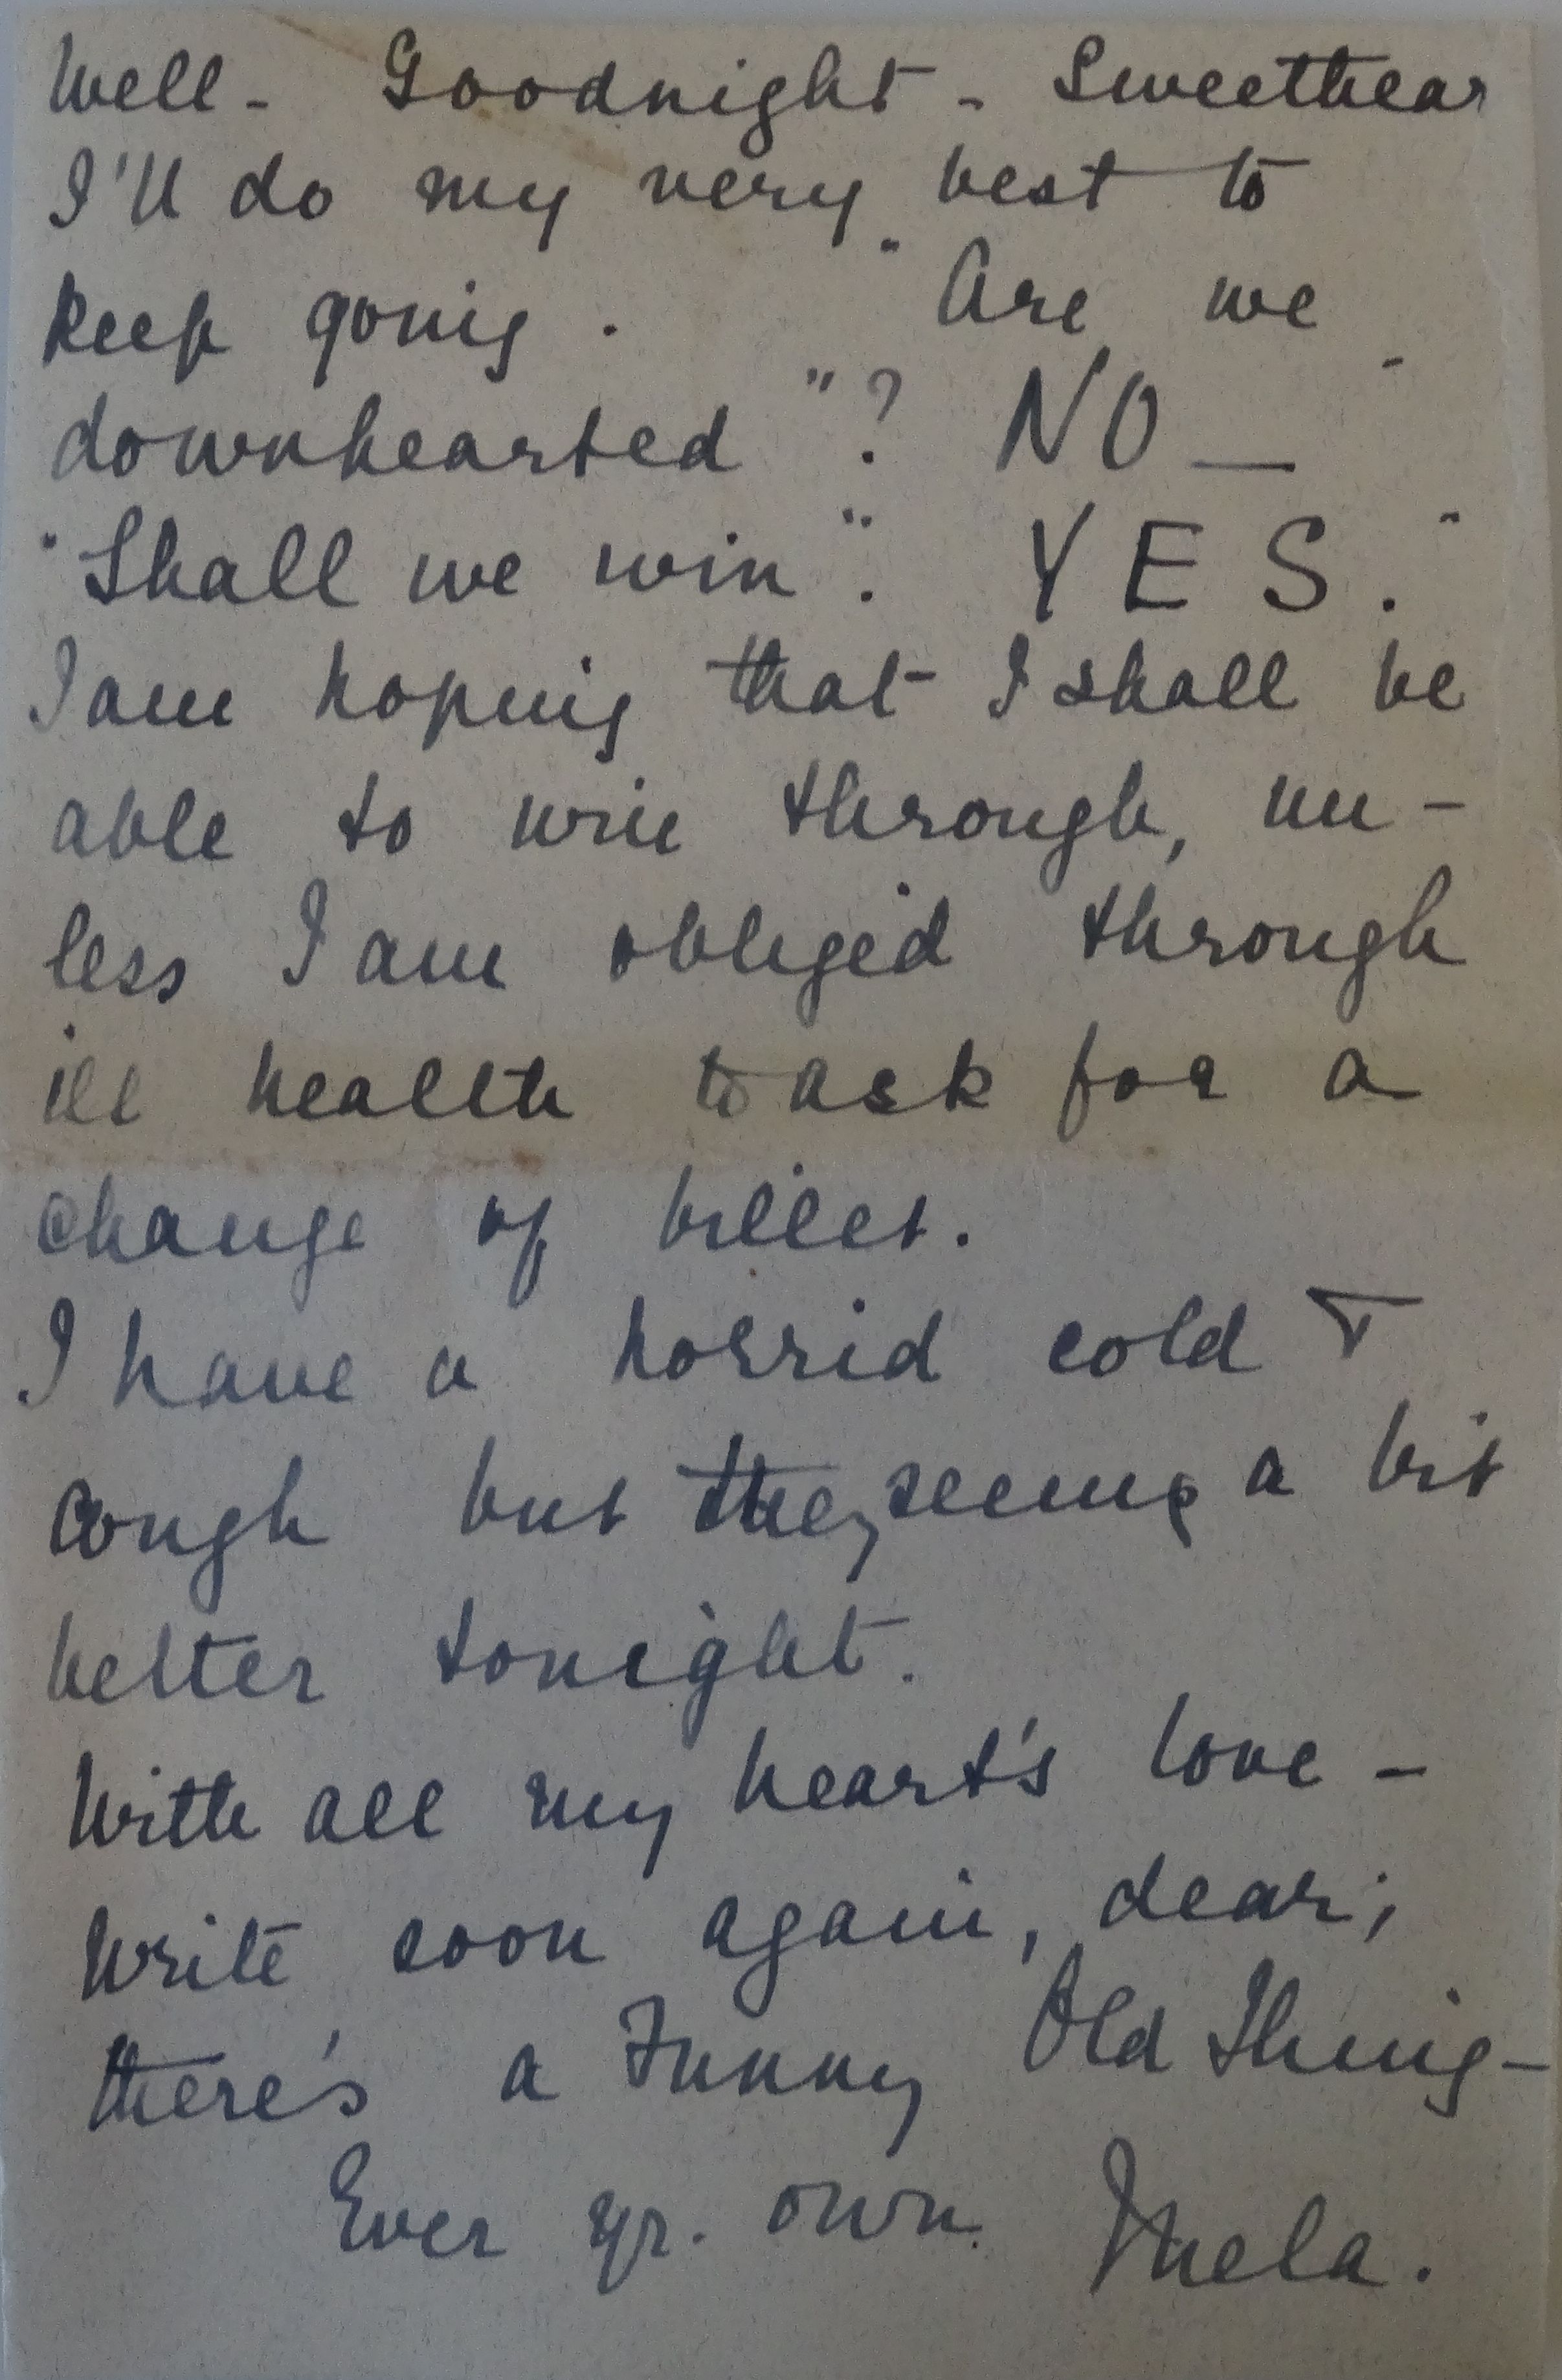 Well - Goodnight - Sweethear
I'll do my very best to
keep going. "Are we
downhearted"? NO —
"Shall we win". YES."
I am hoping that I shall be
able to win through, un-
less I am obliged through
ill health to ask for a
change of billet.
I have a horrid cold &
cough but they seems a bit
better tonight.
With all my heart's love -
Write soon again, dear;
there's a Funny Old Thing -
Ever yr. own